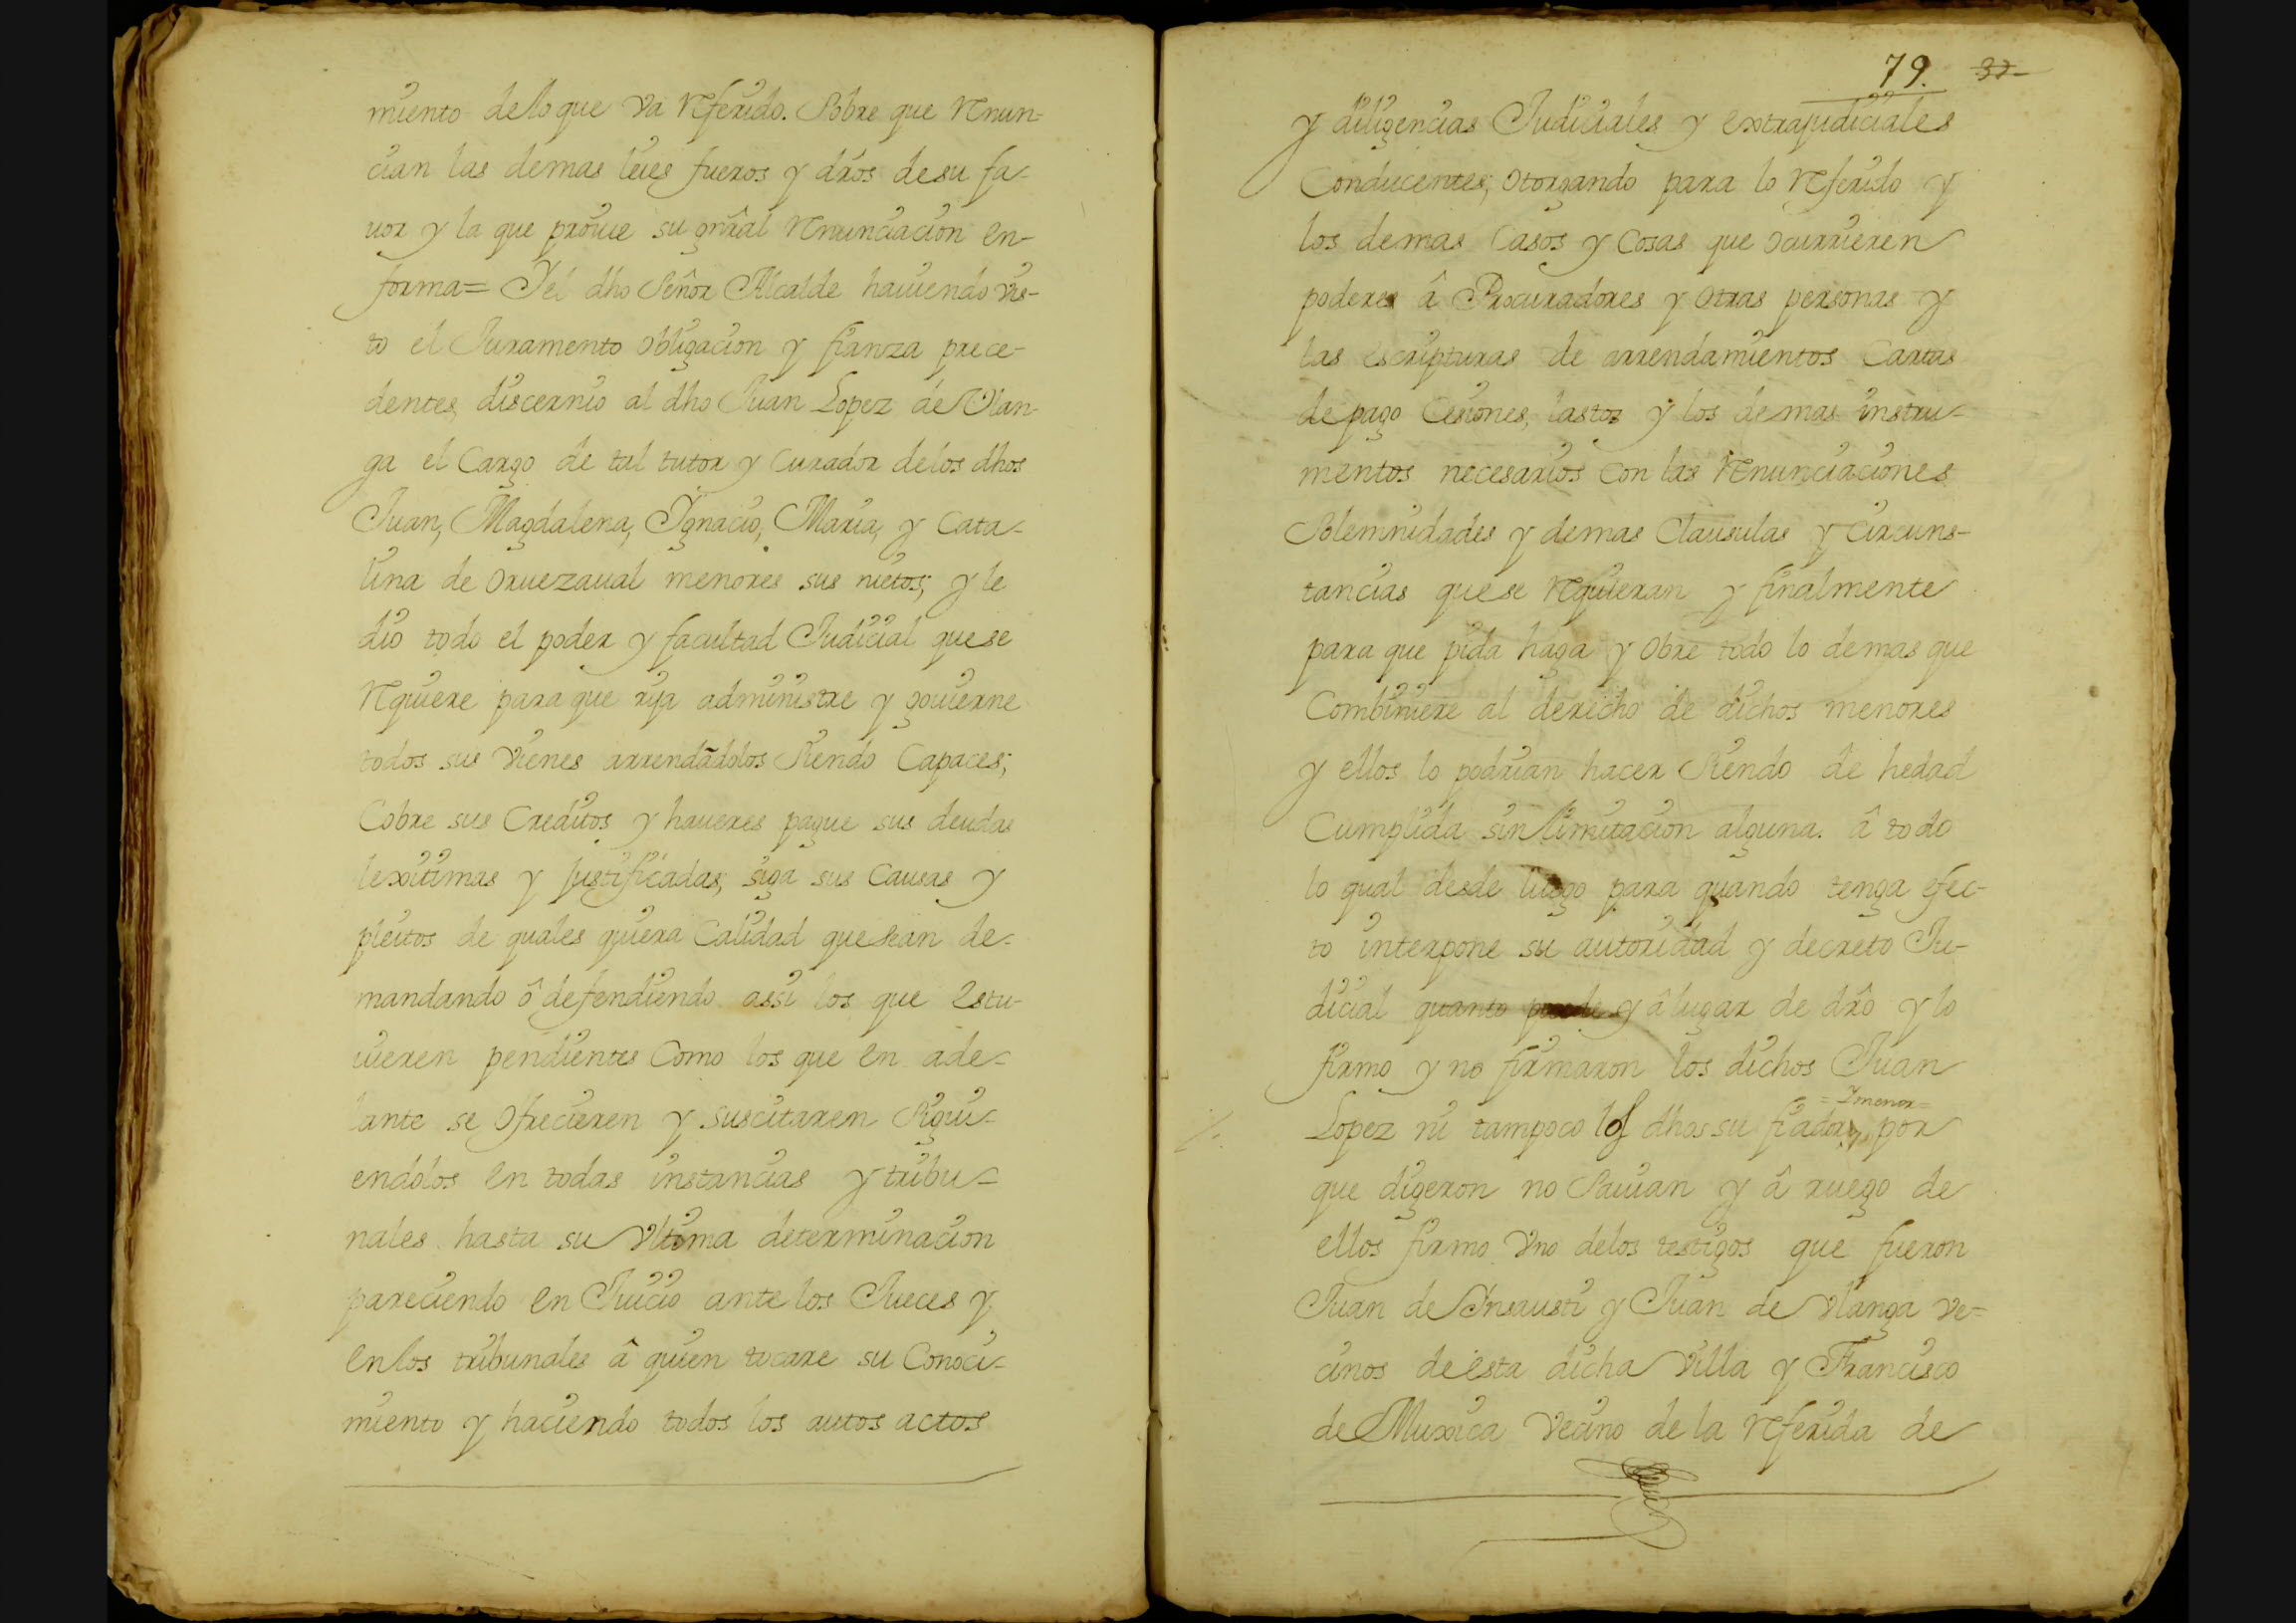 miento de lo que va Referido. Sobre que Renun-
cian las demas leies fueros y dr̃os de su fa-
uor y la que proiue su gñral Renunciacion en-
forma= Y el dho Señor Alcalde hauiendo vis-
to el Juramento obligacion y fianza prece-
dentes, discernio al dho Juan Lopez de Vlan-
ga el Cargo de tal tutor y Curador de los dhos
Juan, Magdalena, Ygnacio, Maria, y Cata-
lina de Oruezaual menores sus nietos; y le
dio todo el poder y facultad Judicial que se
Requiere para que rija administre y gouierne
todos sus vienes arrendãdolos siendo Capaces;
Cobre sus Creditos y haueres pague sus deudas
lexitimas y justificadas, siga sus Causas y
pleitos de quales quiera Calidad que sean de-
mandando ô defendiendo assi los que estu-
uieren pendientes Como los que en ade-
lante se ofrecieren y suscitaren Sigui-
endolos en todas instancias y tribu-
nales hasta su vltima determinacion
pareciendo en Juicio ante los Jueces y
en los tribunales â quien tocare su Conoci-
miento y haciendo todos los autos actos
79. 32
y diligencias Judiciales y extrajudiciales
Conducentes, otorgando para lo Referido y
los demas Casos y Cosas que ocurrieren
poderes â Procuradores y otras personas y
las escripturas de arrendamientos Cartas
de pago Cesiones, lastos y los demas instru-
mentos necesarios Con las Renunciaciones
Solemnidades y demas Clausulas y Circuns-
tancias que se Requieran y finalmente
para que pida haga y obre todo lo demas que
Combiniere al derecho de dichos menores
y ellos lo podrian hacer Siendo de hedad
Cumplida sin limitacion alguna. â todo
lo qual desde luego para quando tenga efec-
to interpone su autoridad y decreto Ju-
dicial quanto puede y â lugar de dr̃o y lo
firmo y no firmaron los dichos Juan
= Y menor =
Lopez ni tampoco los dhos su fiador, por
que digeron no Sauian y â ruego de
ellos firmo vno de los testigos que fueron
Juan de Ynsausti y Juan de Vlanga ve-
cinos de esta dicha villa y Francisco
de Muxica vecino de la Referida de